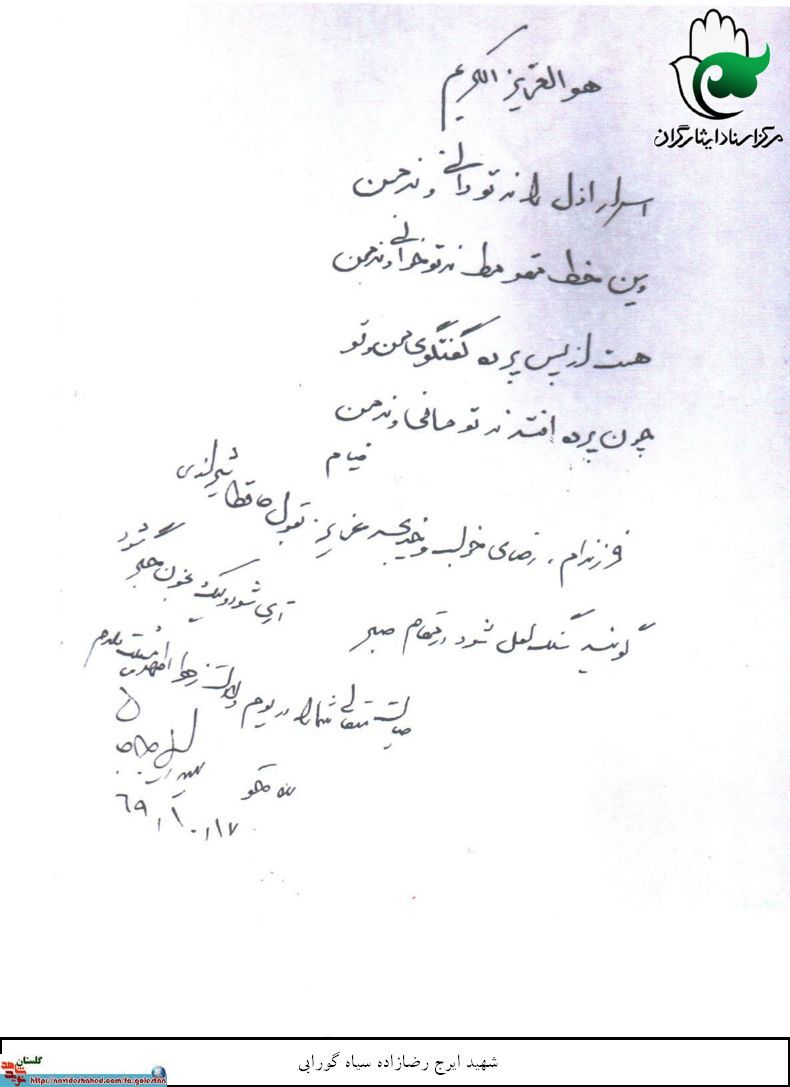 مرکز اسناد ایثارگران
هو العزیز الکریم
اسرار ازل را نه تو دانی و نه من
وین خط مقرمط نه تو خوانی و نه من
هست از پس پرده گفتگوی من و تو
چون پرده افتد نه تو مانی و نه من
خیام
فرزندام، رضای خوب و خدیجه عزیز بقول حافظ شیرازی
گویند سنگ لعل شود در مقام صبر
آری شود ولیک بخون جگر شود
شما را در یوم ولادت زهرا
۶۹/۱۰/۱۷
شهید ایرج رضازاده سیاه گورابی
گلستان
https://navideshahed.com/fa/golestan